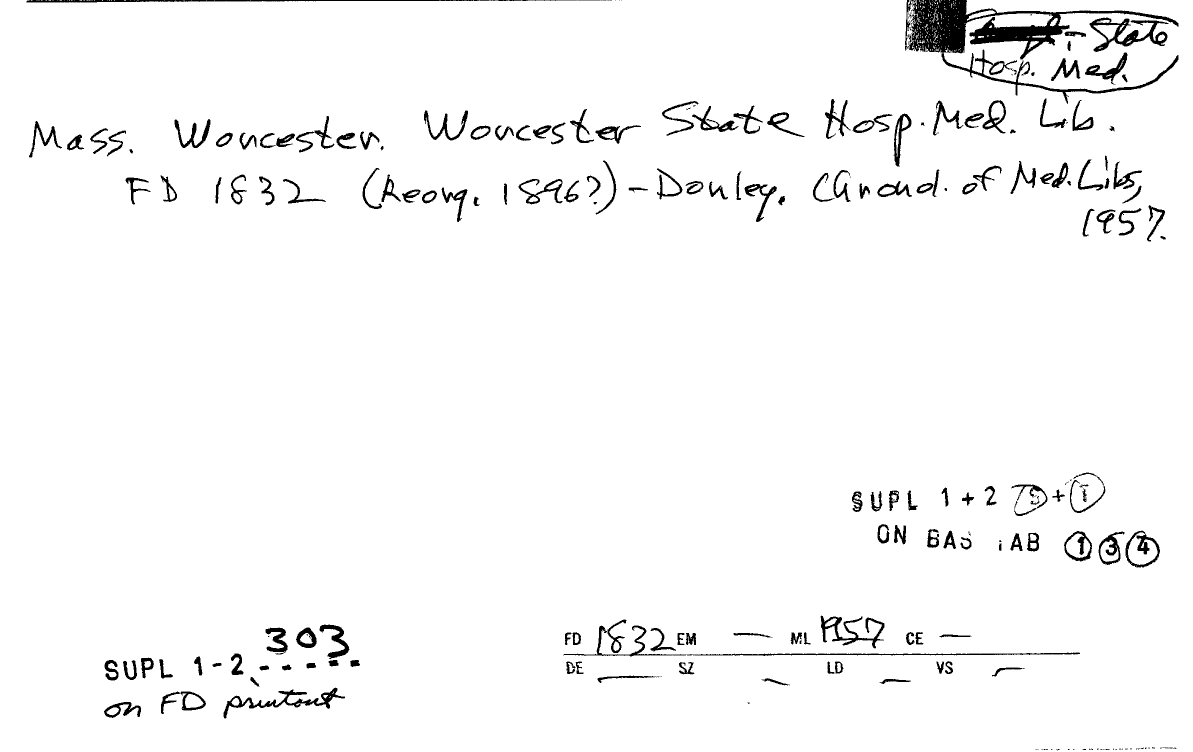 - State
Hosp. Med.
Mass. Worcester. Worcester State Hosp. Med. Lib.
FD 1832 (Reorg. 1896?) - Donley. of Med. Libs,
1957.
SUPL 1 + 2 S + T
ON BAS TAB 1 3 4
303
SUPL 1-2
on FD printout
FD 1832 EM — ML 1957 CE —
DE — SZ — LD — VS —